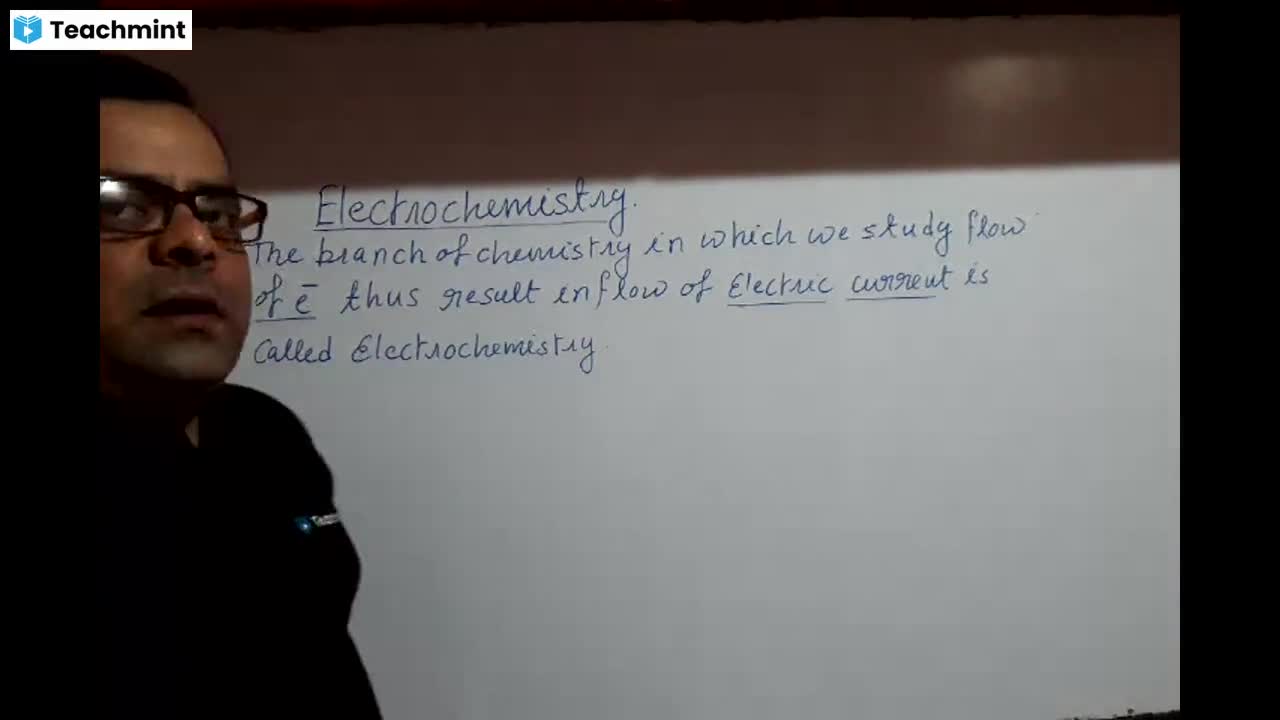 Teachmint
Electrochemistry.
The branch of chemistry in which we study flow
of ē thus result in flow of Electric current is
Called Electrochemistry.